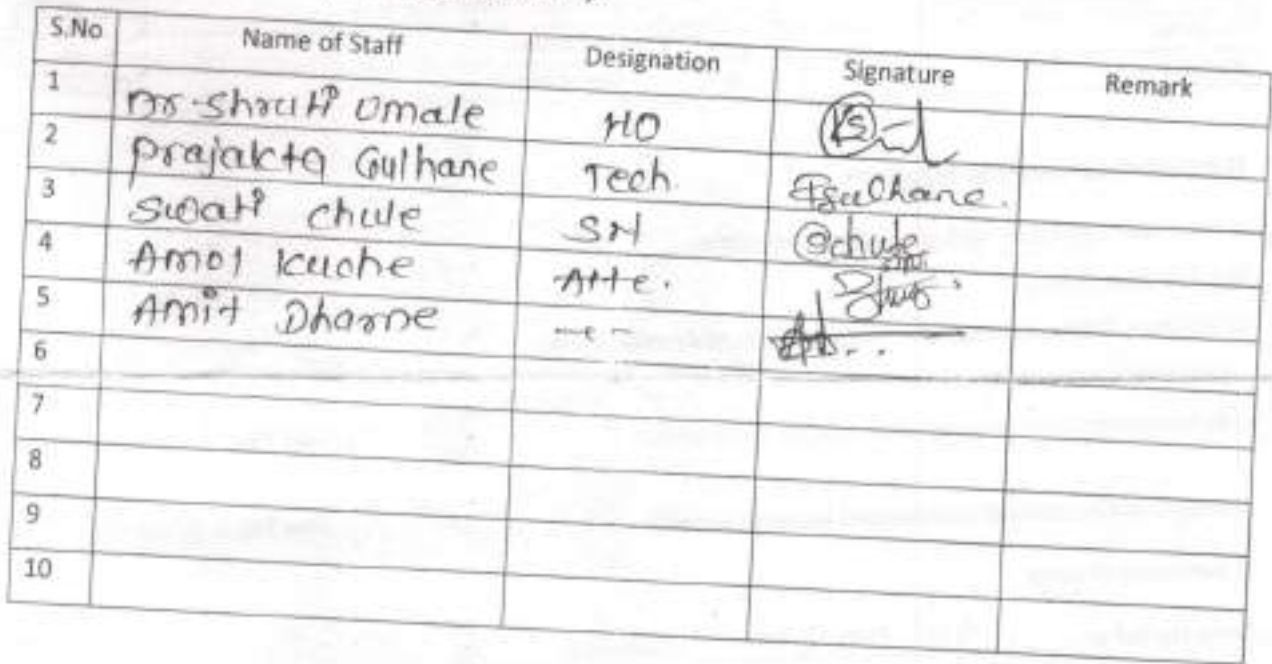 S.No Name of Staff Designation Signature Remark
1 Dr. Shruti Umale MO
2 Prajakta Gulhane Tech.
3 Swati chule SN @chule
4 Amol Kuche Atte.
5 Amit Dharme -"-
6
7
8
9
10